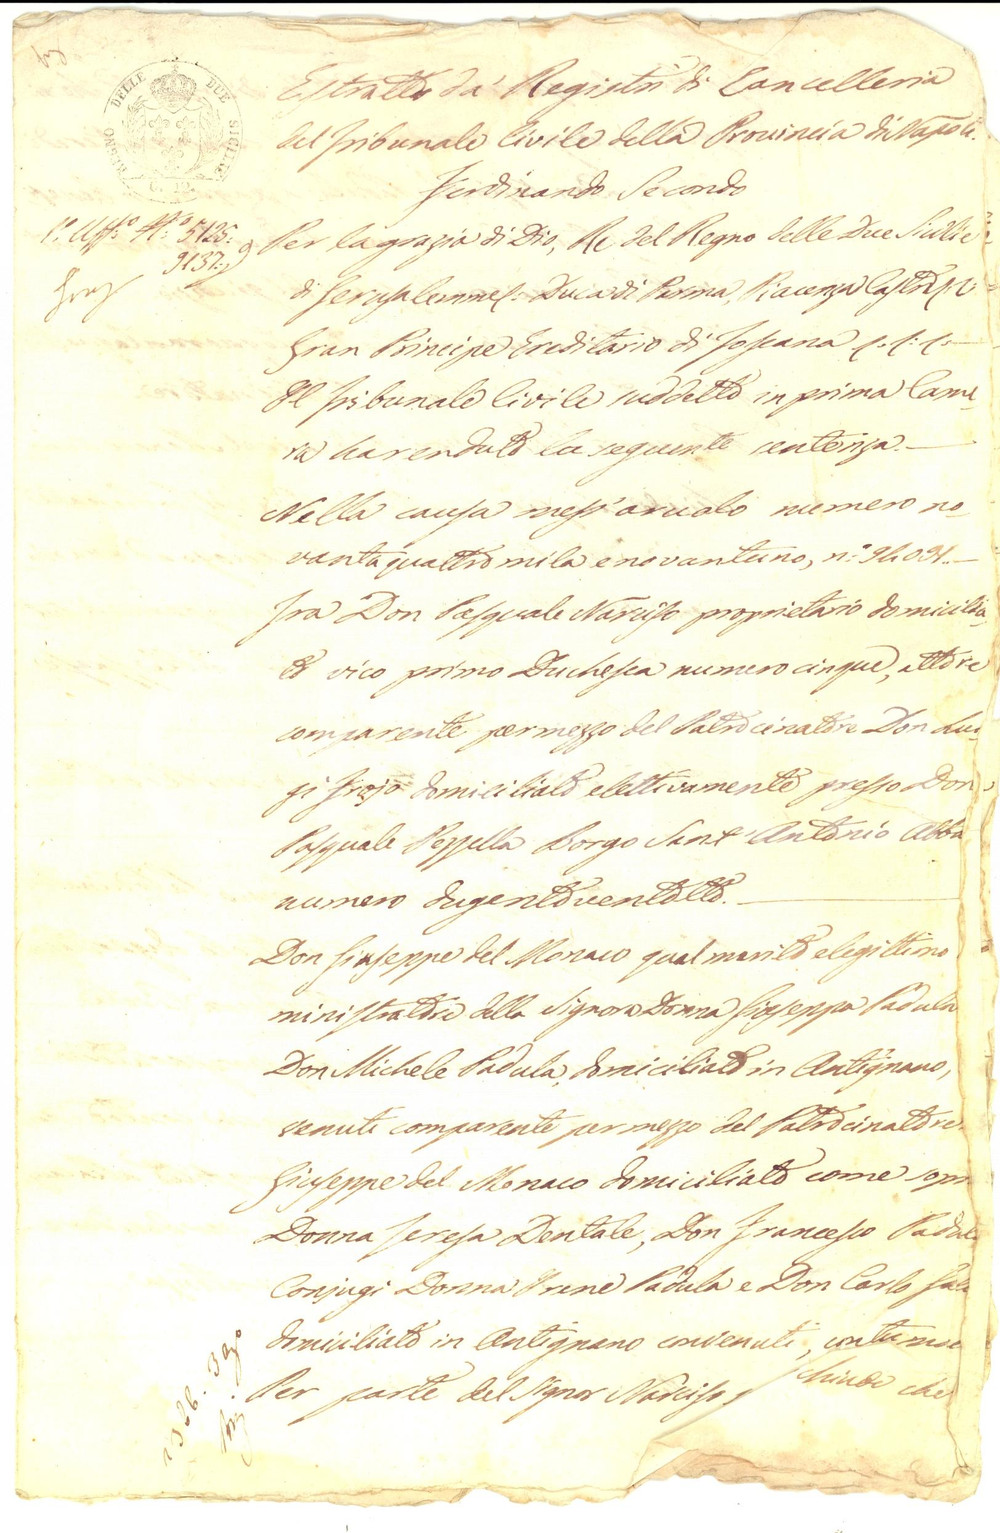 REGNO DELLE DUE SICILIE
G. 12.
Estratto da' Registri di Cancelleria
del Tribunale Civile della Provincia di Napoli.
Ferdinando Secondo
1.° Uff.° N.° 5125:
9137:
Per la grazia di Dio, Re del Regno delle Due Sicilie
di Gerusalemme: Duca di Parma, Piacenza Castro
Gran Principe Ereditario di Toscana
Il Tribunale Civile suddetto in prima Came-
ra ha renduto la seguente sentenza. —
Nella causa mess' a ruolo numero no-
vantaquattromila e novantuno, n.° 94091. —
Fra Don Pasquale Narciso proprietario domicilia-
to vico primo Duchesca numero cinque, attore
comparente per mezzo del Patrocinatore Don Lui-
gi Frojo domiciliato elettivamente presso Don
Pasquale Borgo Sant' Antonio Abba
numero dugentoventotto. —
Don Giuseppe del Monaco qual marito e legittimo
ministratore della Signora Donna Giuseppa Padula
Don Michele Padula, domiciliato in Antignano,
venuti comparente per mezzo del Patrocinatore
Giuseppe del Monaco domiciliato come sopr
Donna Teresa Dentale, Don Francesco Padula
Conjugi Donna Irene Padula e Don Carlo
domiciliato in Antignano convenuti, contumac
Per parte del Signor Narciso, chiude che